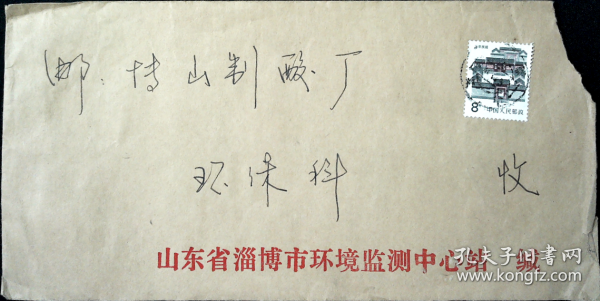 邮.博山制酸厂
8分
中国人民邮政
环保科 收
山东省淄博市环境监测中心站 缄
孔夫子旧书网
www.kongfz.com